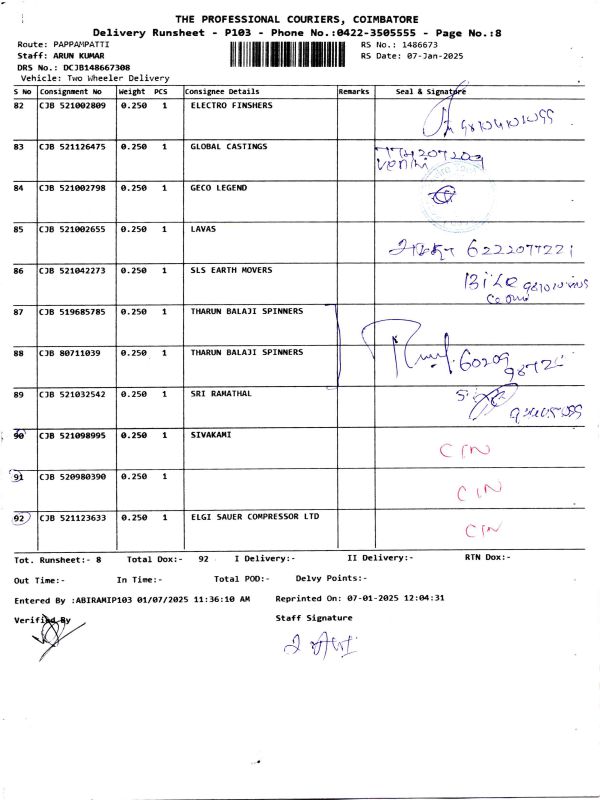 THE PROFESSIONAL COURIERS, COIMBATORE
Delivery Runsheet - P103 - Phone No.:0422-3505555 - Page No.:8
Route: PAPPAMPATTI RS No.: 1486673
Staff: ARUN KUMAR RS Date: 07-Jan-2025
DRS No.: DCJB148667308
Vehicle: Two Wheeler Delivery
S No Consignment No Weight PCS Consignee Details Remarks Seal & Signature
82 CJB 521002809 0.250 1 ELECTRO FINSHERS
83 CJB 521126475 0.250 1 GLOBAL CASTINGS
84 CJB 521002798 0.250 1 GECO LEGEND
85 CJB 521002655 0.250 1 LAVAS 6222077221
86 CJB 521042273 0.250 1 SLS EARTH MOVERS
87 CJB 519685785 0.250 1 THARUN BALAJI SPINNERS
88 CJB 80711039 0.250 1 THARUN BALAJI SPINNERS
89 CJB 521032542 0.250 1 SRI RAMATHAL
90 CJB 521098995 0.250 1 SIVAKAMI CIN
91 CJB 520980390 0.250 1 CIN
92 CJB 521123633 0.250 1 ELGI SAUER COMPRESSOR LTD CIN
Tot. Runsheet:- 8 Total Dox:- 92 I Delivery:- II Delivery:- RTN Dox:-
Out Time:- In Time:- Total POD:- Delvy Points:-
Entered By :ABIRAMIP103 01/07/2025 11:36:10 AM Reprinted On: 07-01-2025 12:04:31
Verified By Staff Signature